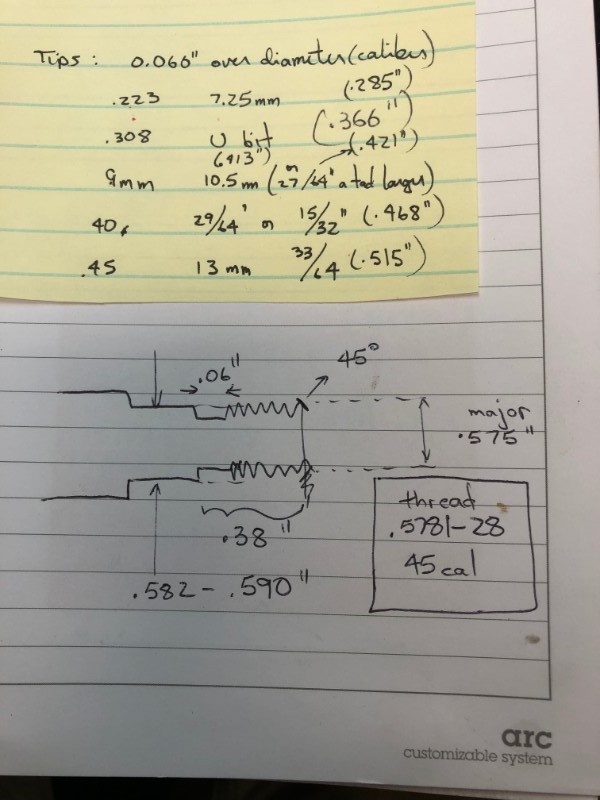 Tips : 0.060" over diameter (calibers)
.223 7.25mm (.285")
.308 U bit (.366")
(.421")
9mm 10.5mm (or 27/64" a tad larger)
40, 29/64" or 15/32" (.468")
.45 13 mm 33/64 (.515")
.06"
45°
major
.575"
.38"
.582 - .590"
thread
.5781-28
45 cal
arc
customizable system